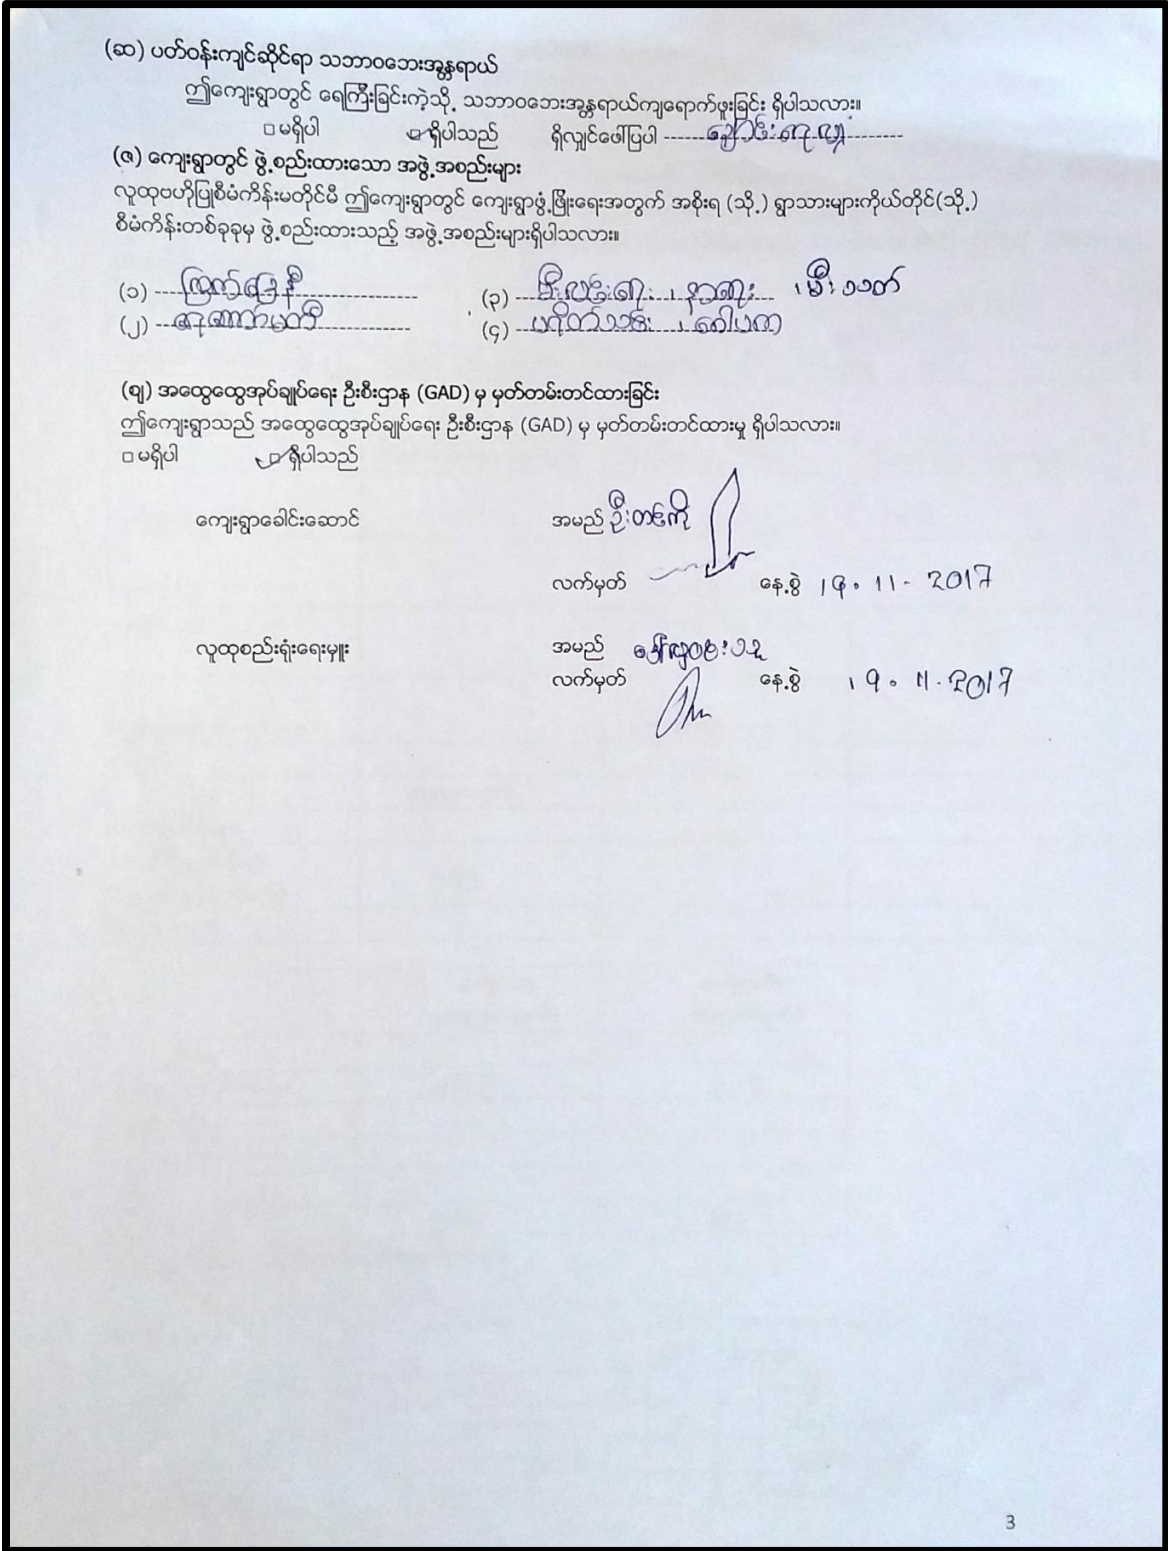 (ဆ) ပတ်ဝန်းကျင်ဆိုင်ရာ သဘာဝဘေးအန္တရာယ်
ဤကျေးရွာတွင် ရေကြီးခြင်းကဲ့သို့ သဘာဝဘေးအန္တရာယ်ကျရောက်ဖူးခြင်း ရှိပါသလား။
□ မရှိပါ □ ရှိပါသည် ရှိလျှင်ဖော်ပြပါ
(ဇ) ကျေးရွာတွင် ဖွဲ့စည်းထားသော အဖွဲ့အစည်းများ
လူထုဗဟိုပြုစီမံကိန်းမတိုင်မီ ဤကျေးရွာတွင် ကျေးရွာဖွံ့ဖြိုးရေးအတွက် အစိုးရ (သို့) ရွာသားများကိုယ်တိုင်(သို့)
စီမံကိန်းတစ်ခုခုမှ ဖွဲ့စည်းထားသည့် အဖွဲ့အစည်းများရှိပါသလား။
(၁) ကြက်ခြေနီ (၃) မီးလင်းရေး ၊ နာရေး ၊ မီးသတ်
(၂) (၄)
(ဈ) အထွေထွေအုပ်ချုပ်ရေး ဦးစီးဌာန (GAD) မှ မှတ်တမ်းတင်ထားခြင်း
ဤကျေးရွာသည် အထွေထွေအုပ်ချုပ်ရေး ဦးစီးဌာန (GAD) မှ မှတ်တမ်းတင်ထားမှု ရှိပါသလား။
□ မရှိပါ □ ရှိပါသည်
ကျေးရွာခေါင်းဆောင် အမည် ဦးတင်ကို
လက်မှတ် နေ့စွဲ 19.11.2017
လူထုစည်းရုံးရေးမှူး အမည်
လက်မှတ် နေ့စွဲ 19.11.2017
3